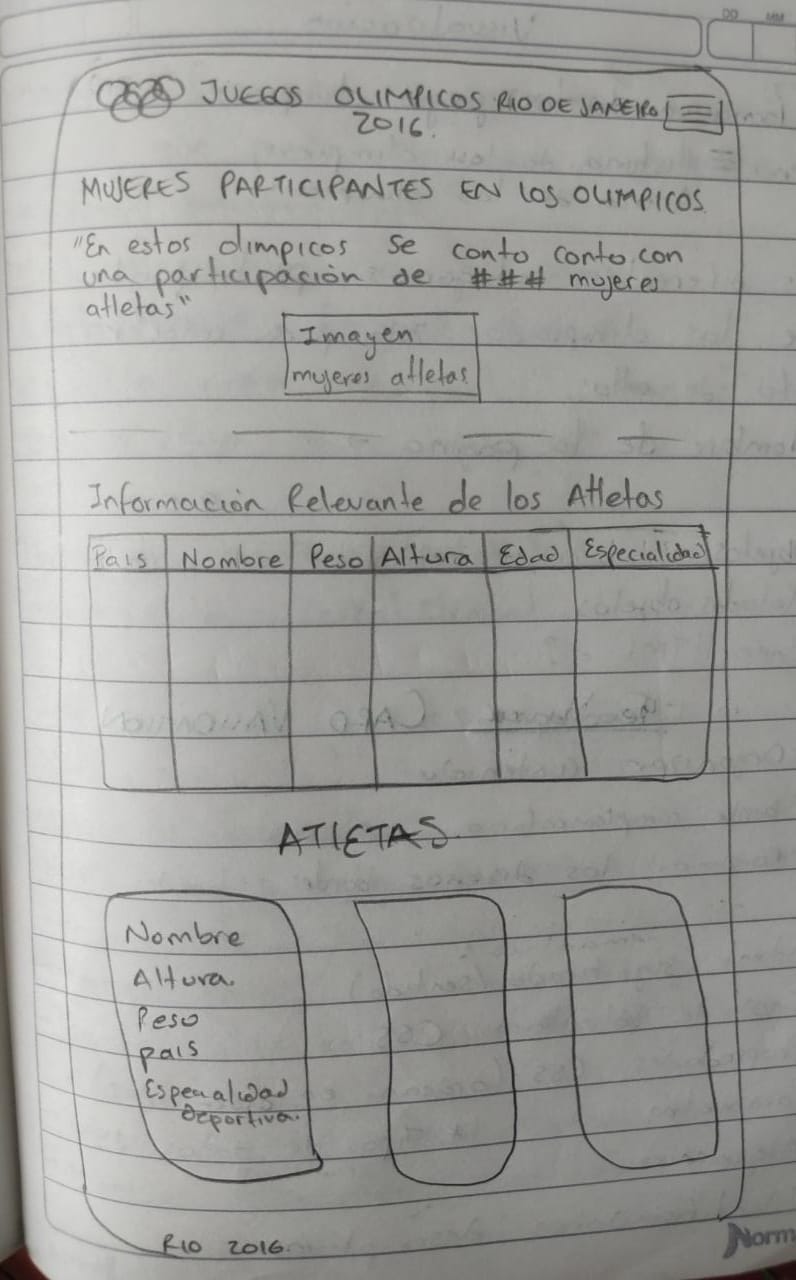 DD MM
JUEGOS OLIMPICOS RIO DE JANEIRO
2016.
MUJERES PARTICIPANTES EN LOS OLIMPICOS
"En estos olimpicos se conto conto con
una participación de ### mujeres
atletas"
Imagen
mujeres atletas
Información Relevante de los Atletas
Pais Nombre Peso Altura Edad Especialidad
ATLETAS
Nombre
Altura.
Peso
pais
Especialidad
Deportiva.
RIO 2016.
Norm